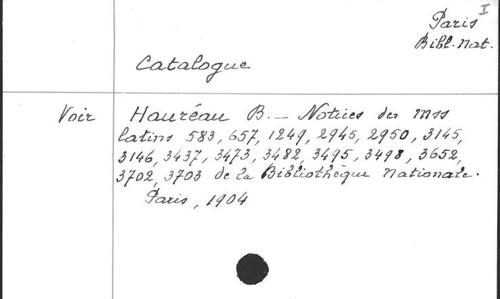 I
Paris
Bibl. Nat.
Catalogue
Voir Hauréau B. — Notices des mss
latins 583, 657, 1249, 2945, 2950, 3145,
3146, 3437, 3473, 3482, 3495, 3498, 3652,
3702, 3703 de la Bibliothèque Nationale.
Paris, 1904